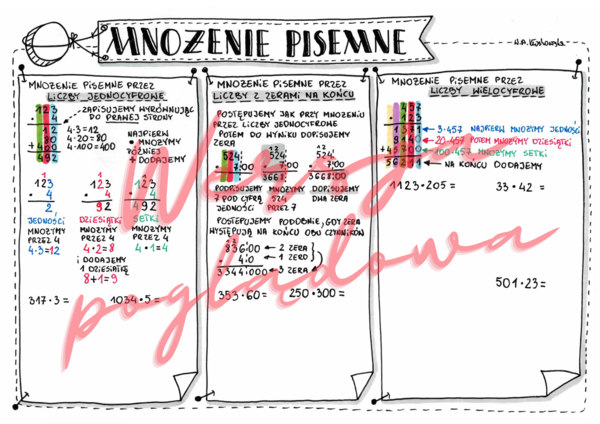 MNOŻENIE PISEMNE
MNOŻENIE PISEMNE PRZEZ
LICZBY JEDNOCYFROWE
123
4
12
80
+400
492
ZAPISUJEMY WYRÓWNUJĄC
DO PRAWEJ STRONY
4·3=12
4·20=80
4·100=400
NAJPIERW
• MNOŻYMY
PÓŹNIEJ
+ DODAJEMY
1
123
4
2
JEDNOŚCI
MNOŻYMY
PRZEZ 4
4·3=12
1
123
4
92
DZIESIĄTKI
MNOŻYMY
PRZEZ 4
4·2=8
I DODAJEMY
1 DZIESIĄTKĘ
8+1=9
1
123
4
492
SETKI
MNOŻYMY
PRZEZ 4
4·1=4
317·3=
1034·5=
MNOŻENIE PISEMNE PRZEZ
LICZBY Z ZERAMI NA KOŃCU
POSTĘPUJEMY JAK PRZY MNOŻENIU
PRZEZ LICZBY JEDNOCYFROWE
POTEM DO WYNIKU DOPISUJEMY
ZERA
524
• 7:00
PODPISUJEMY
7 POD CYFRĄ
JEDNOŚCI
12
524
7:00
3668
MNOŻYMY
524
PRZEZ 7
12
524
7:00
3668:00
DOPISUJEMY
DWA ZERA
POSTĘPUJEMY PODOBNIE, GDY ZERA
WYSTĘPUJĄ NA KOŃCU OBU CZYNNIKÓW
836:00 2 ZERA
4:0 1 ZERO
3344:000 3 ZERA
353·60=
250·300=
MNOŻENIE PISEMNE PRZEZ
LICZBY WIELOCYFROWE
457
123
1371 3·457 NAJPIERW MNOŻYMY JEDNOŚCI
9140 20·457 POTEM MNOŻYMY DZIESIĄTKI
+45700 100·457 MNOŻYMY SETKI
56211 NA KOŃCU DODAJEMY
1123·205=
33·42=
501·23=
Wersja
poglądowa